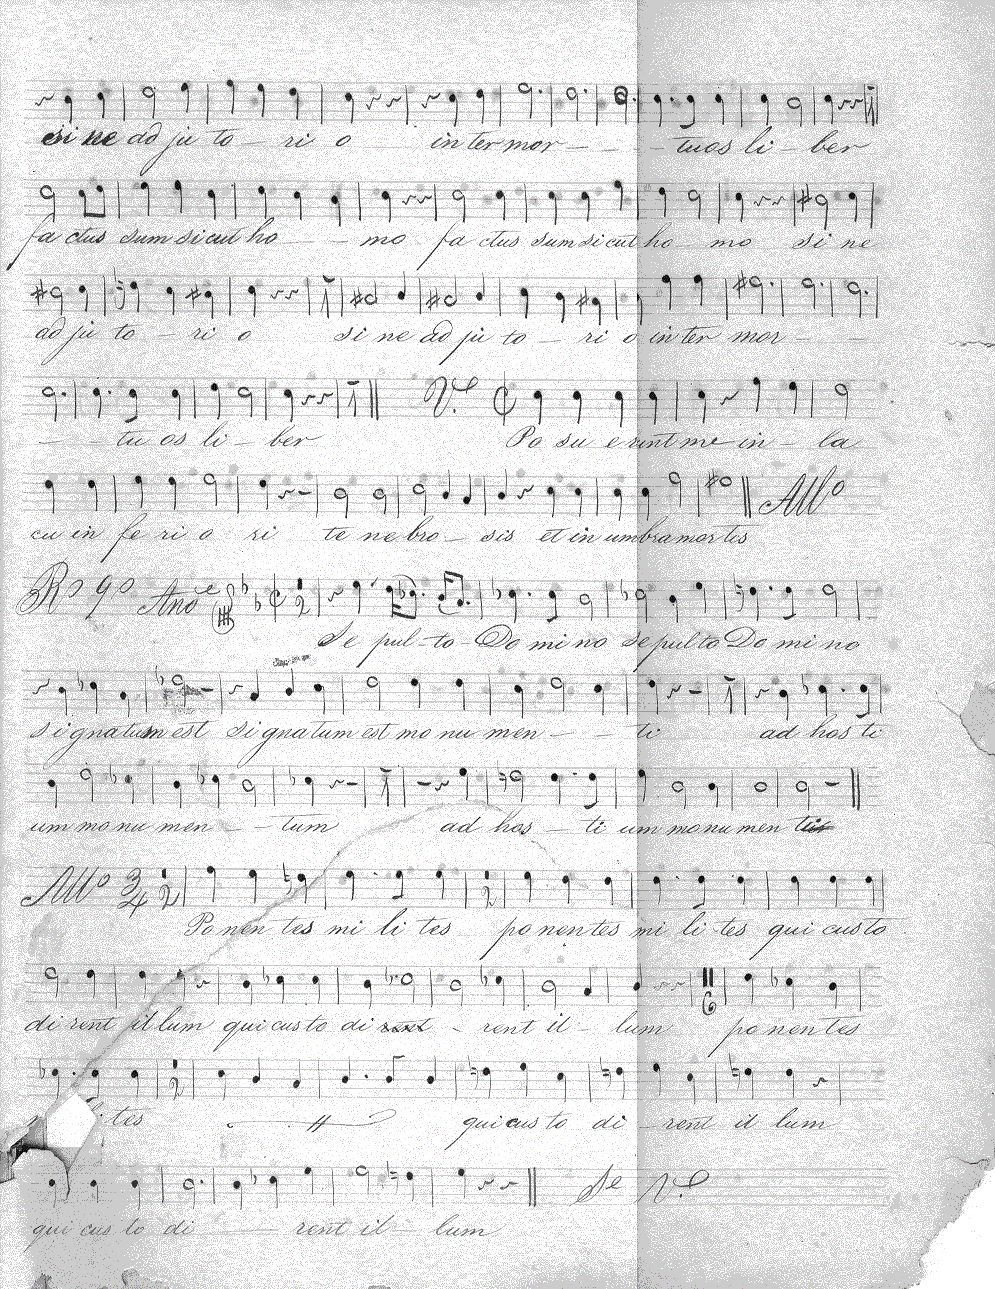 si ne ad ju to - ri o in ter mor - - - tuos li - ber
fa ctus sum si cut ho - - mo fa ctus sum si cut ho - mo si ne
ad ju to - ri o si ne ad ju to - ri o in ter mor - -
- - tu os li - ber V.º Po su e runt me in - la
cu in fe ri o ri te ne bro - sis et in umbra mortes Allº
Rº 9º And.e
Se pul - to Do mi no Se pul to Do mi no
si gna tum est si gna tum est mo nu men - - ti ad hos ti
um mo nu men - - tum ad hos - ti um mo nu men
Allº 3/4
Po nen tes mi li tes po nen tes mi li tes qui cus to
di rent il lum qui cus to di - rent il - lum po nen tes
tes qui cus to di - rent il lum
Se V.º
qui cus to di - rent il - lum